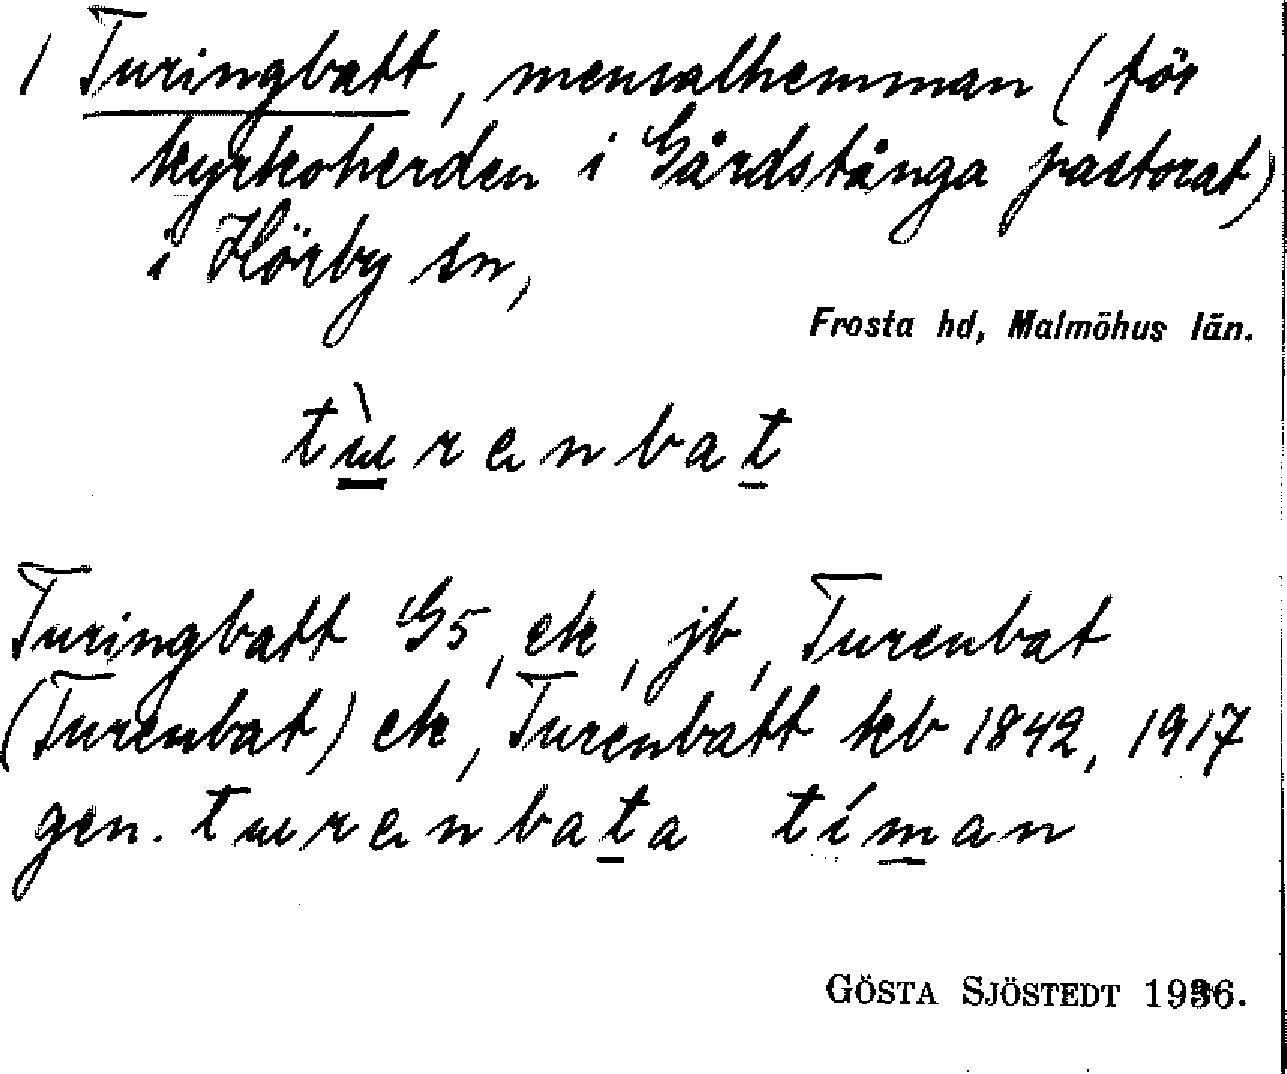 1 Turingbatt, mensalhemman (för
kyrkoherden i Gårdstånga pastorat)
i Hörby sn,
Frosta hd, Malmöhus län.
tùrenbat
Turingbatt G5, ek, jb, Turenbat
(Turenbat) ek, Turenbatt kb 1842, 1917
gen. turenbata tíman
GÖSTA SJÖSTEDT 1936.